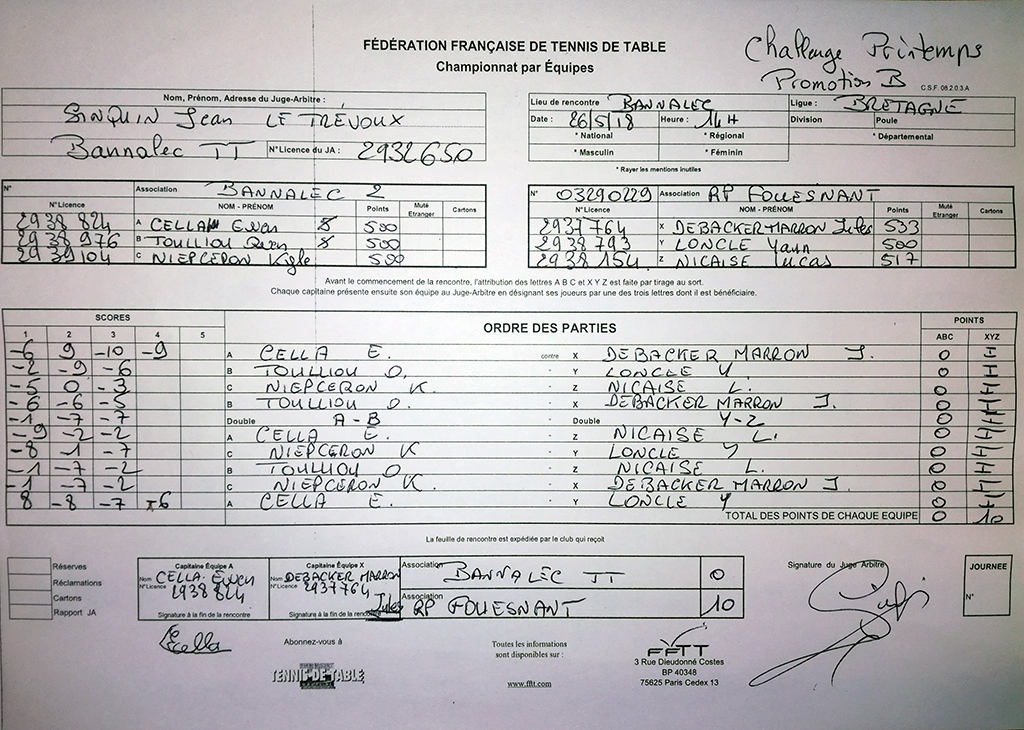 FÉDÉRATION FRANÇAISE DE TENNIS DE TABLE
Championnat par Équipes
Challenge Printemps
Promotion B
C.S.F. 06.2.0.3.A
Nom, Prénom, Adresse du Juge-Arbitre :
SINQUIN Jean LE TRÉVOUX
Bannalec TT N°Licence du JA : 2932650
Lieu de rencontre BANNALEC Ligue : BRETAGNE
Date : 26/5/18 Heure : 14H Division Poule
* National * Régional * Départemental
* Masculin * Féminin
* Rayer les mentions inutiles
N° Association BANNALEC 2
N°Licence NOM - PRÉNOM Points Muté Etranger Cartons
2938 824 A CELLA Ewen 8 500
2938 976 B TOULLIOU 8 500
2939104 C NIEPCERON 500
N° 03290229 Association RP FOUESNANT
N°Licence NOM - PRÉNOM Points Muté Etranger Cartons
2937764 X DEBACKER MARRON Jules 533
2938793 Y LONCLE Yann 500
2938154 Z NICAISE Lucas 517
Avant le commencement de la rencontre, l'attribution des lettres A B C et X Y Z est faite par tirage au sort.
Chaque capitaine présente ensuite son équipe au Juge-Arbitre en désignant ses joueurs par une des trois lettres dont il est bénéficiaire.
SCORES ORDRE DES PARTIES POINTS
1 2 3 4 5 ABC XYZ
-6 9 -10 -9 A CELLA E. contre X DEBACKER MARRON J. 0 1
-2 -9 -6 B TOULLIOU O. - Y LONCLE Y 0 1
-5 0 -3 C NIEPCERON K. - Z NICAISE L. 0 1
-6 -6 -5 B TOULLIOU O. - X DEBACKER MARRON J. 0 1
-1 -7 -7 Double A-B - Double Y-Z 0 1
-9 -2 -2 A CELLA E. - Z NICAISE L. 0 1
-8 -1 -7 C NIEPCERON K - Y LONCLE Y 0 1
-1 -7 -2 B TOULLIOU O. - Z NICAISE L. 0 1
-1 -7 -2 C NIEPCERON K. - X DEBACKER MARRON J. 0 1
8 -8 -7 -6 A CELLA E. - Y LONCLE Y 0 1
TOTAL DES POINTS DE CHAQUE EQUIPE 0 10
La feuille de rencontre est expédiée par le club qui reçoit
Réserves
Réclamations
Cartons
Rapport JA
Capitaine Équipe A
Nom CELLA Ewen
N°Licence 2938 824
Signature à la fin de la rencontre
Capitaine Équipe X
Nom DEBACKER MARRON Jules
N°Licence 2937764
Signature à la fin de la rencontre
Association BANNALEC TT 0
Association RP FOUESNANT 10
Signature du Juge Arbitre
JOURNEE
N°
ECella
Abonnez-vous à
TENNIS-DE-TABLE
Toutes les informations
sont disponibles sur :
www.fftt.com
FFTT
3 Rue Dieudonné Costes
BP 40348
75625 Paris Cedex 13